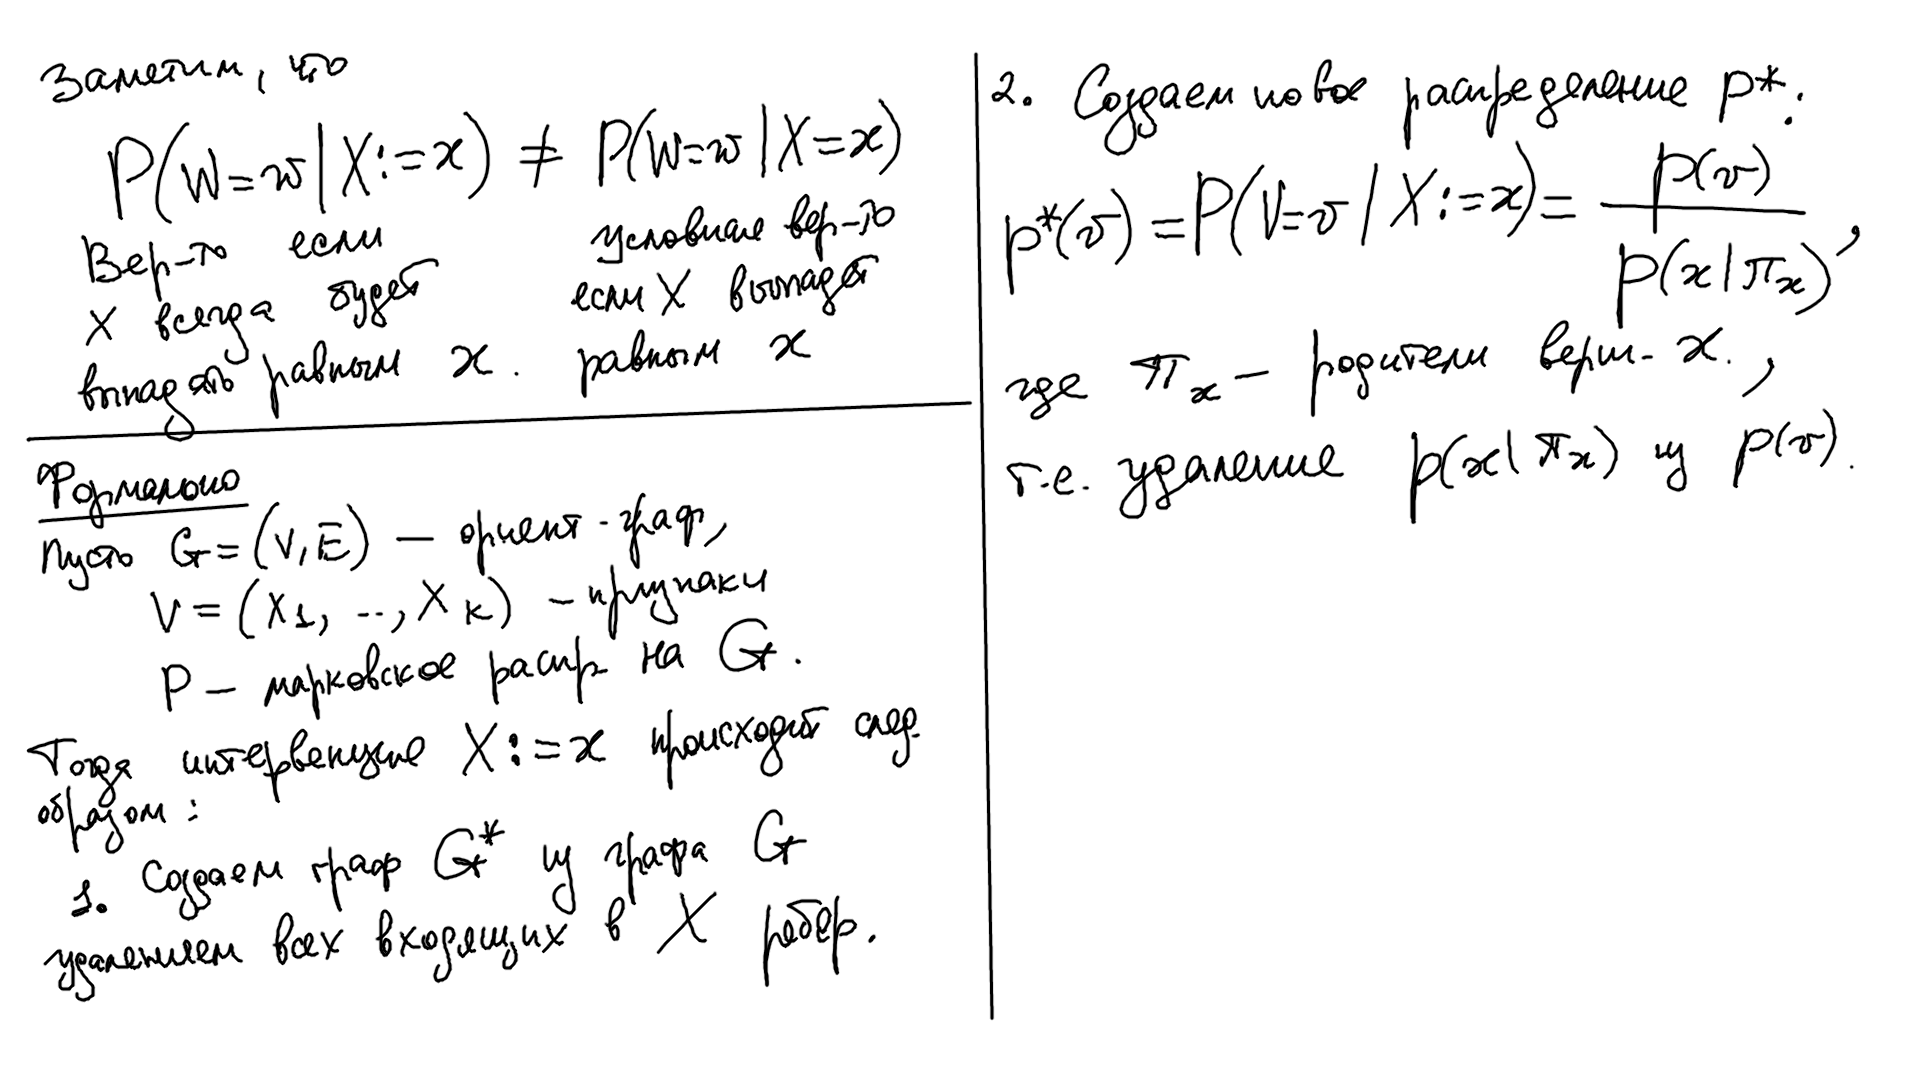 Заметим, что
P(W=w | X:=x) ≠ P(W=w | X=x)
Вер-ть если
X всегда будет
выпадать равным x.
условная вер-ть
если X выпадет
равным x
Формально
Пусть G=(V,E) – ориент. граф,
V = (X₁, .., X_K) – признаки
P – марковское распр. на G.
Тогда интервенция X:=x происходит след.
образом:
1. Создаем граф G* из графа G
удалением всех входящих в X рёбер.
2. Создаем новое распределение p*:
p*(v) = P(V=v | X:=x) = p(v) / p(x|π_x),
где π_x – родители верш. x.,
т.е. удаление p(x|π_x) из p(v).